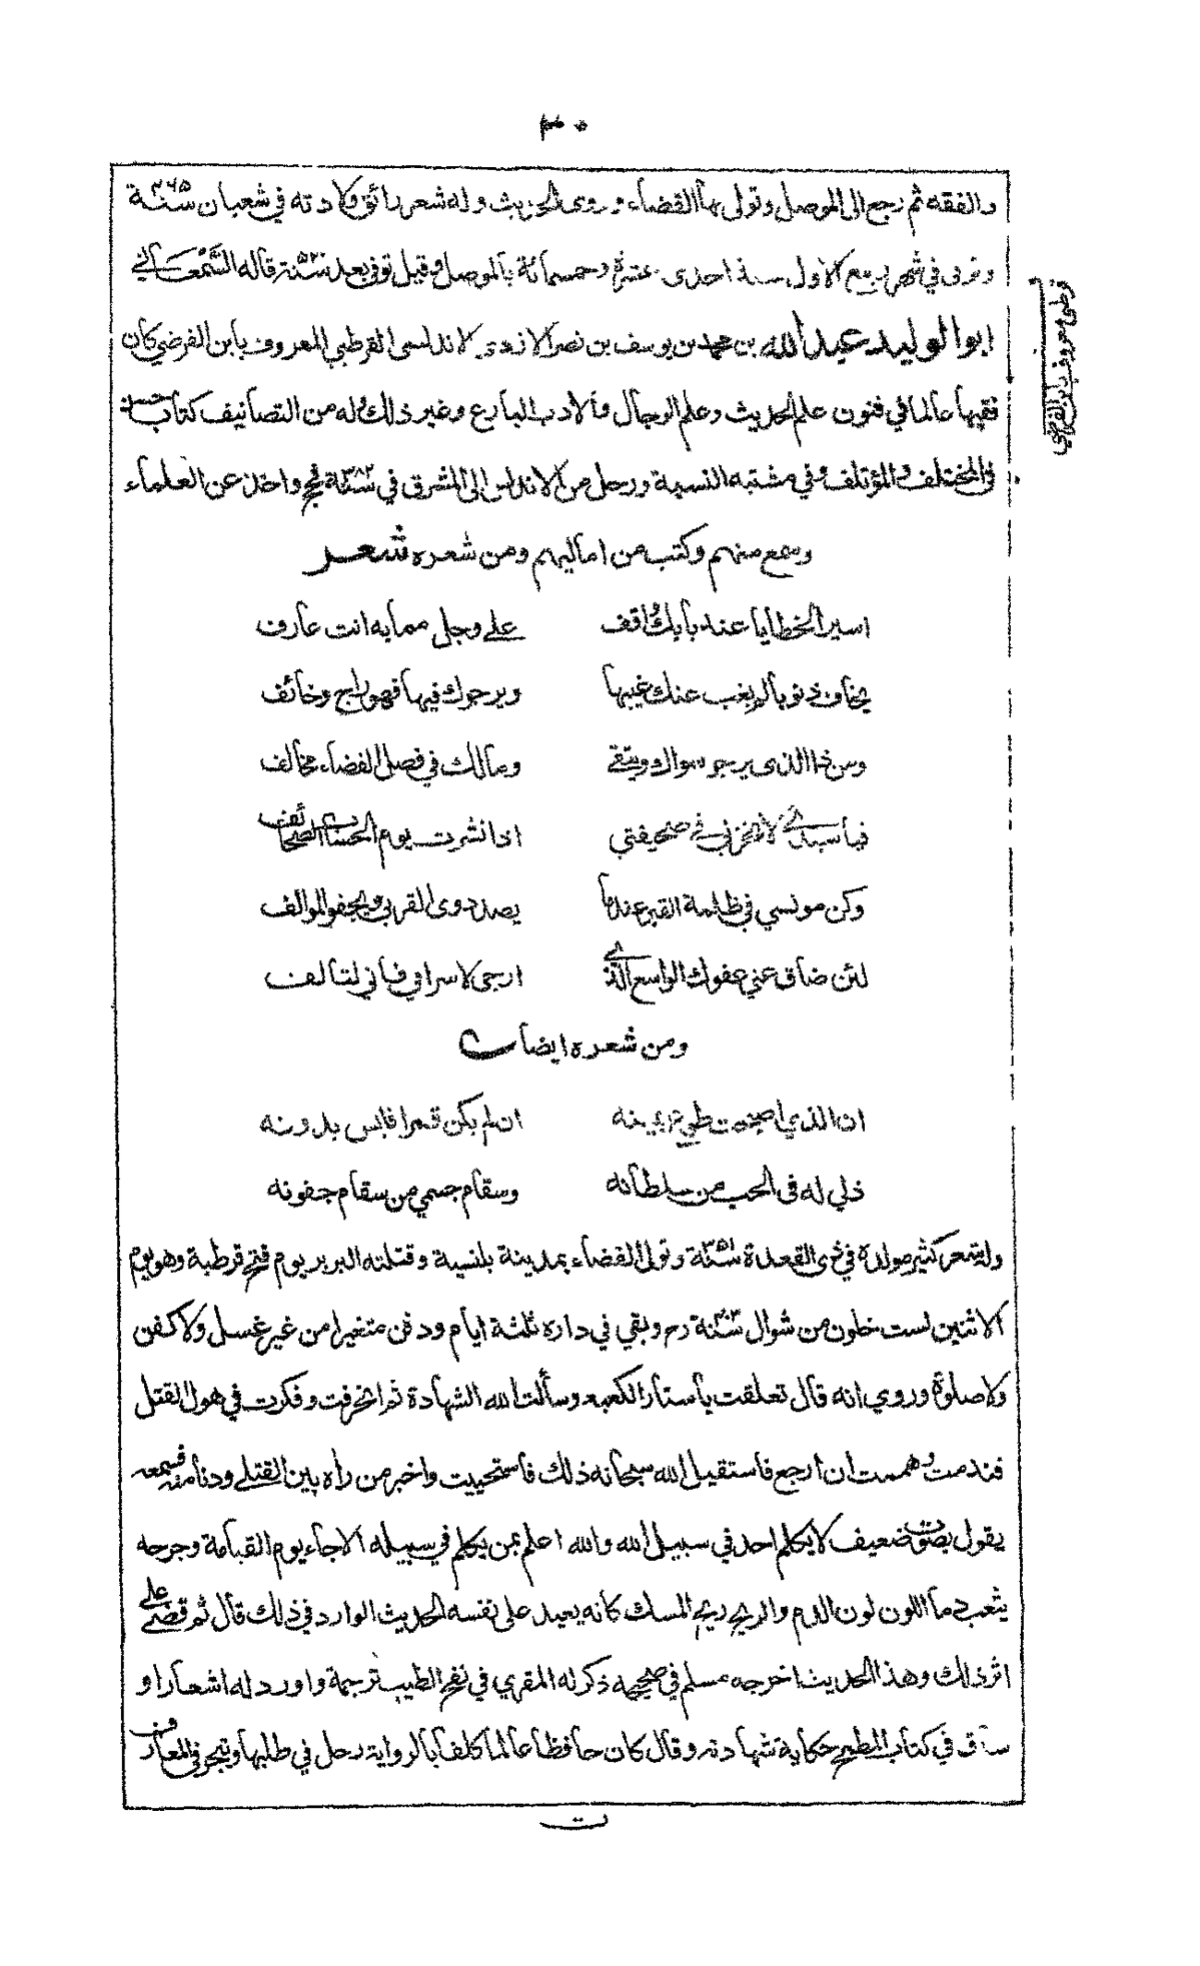 ٣٠
والفقه ثم رجع الى الموصل وتولى بها القضاء وروى الحديث وله شعر رائق ولادته في شعبان سنة ٣٦٥
وتوفى في شهر ربيع الاول سنة احدى عشرة وخمسمائة بالموصل وقيل توفى بعد سنة ٥٢٠ قاله السمعاني
ابو الوليد عبد الله بن محمد بن يوسف بن نصر الازدى الاندلسى القرطبي المعروف بابن الفرضي كان
فقيها عالما في فنون علم الحديث وعلم الرجال والادب البارع وغير ذلك وله من التصانيف كتاب حسن
في المختلف والمؤتلف وفي مشتبه النسبة ورحل من الاندلس الى المشرق في سنة ٣٨٢ فحج واخذ عن العلماء
وسمع منهم وكتب من اماليهم ومن شعره شعر
اسير الخطايا عند بابك واقف على وجل مما به انت عارف
يخاف ذنوبا لم يغب عنك غيبها ويرجوك فيها فهو راج وخائف
ومن ذا الذى يرجو سواك ويتقى ومالك في فصل القضاء مخالف
فيا سيدى لا تخزني في صحيفتي اذا نشرت يوم الحساب الصحائف
وكن مونسي في ظلمة القبر عندما يصد ذوى القربى ويجفو الموالف
لئن ضاق عني عفوك الواسع الذى ارجى لاسرافي فاني لتالف
ومن شعره ايضا
ان الذي اصبحت طوع يمينه ان لم يكن قمرا فليس بدونه
ذلي له في الحب من سلطانه وسقام جسمي من سقام جفونه
وله شعر كثير مولده في ذى القعدة سنة ٣٥١ وتولى القضاء بمدينة بلنسية وقتلته البربر يوم فتح قرطبة وهو يوم
الاثنين لست خلون من شوال سنة ٤٠٣ رح وبقي في داره ثلثة ايام ودفن متغيرا من غير غسل ولا كفن
ولا صلوة وروي انه قال تعلقت باستار الكعبه وسألت الله الشهادة ثم انحرفت وفكرت في هول القتل
فندمت وهممت ان ارجع فاستقيل الله سبحانه ذلك فاستحييت واخبر من راه بين القتلى ودنا منه فسمعه
يقول بصوت ضعيف لا يكلم احد في سبيل الله والله اعلم بمن يكلم في سبيله الا جاء يوم القيامة وجرحه
يثعب دما اللون لون الدم والريح ريح المسك كانه يعيد على نفسه الحديث الوارد في ذلك قال ثم قضى على
اثر ذلك وهذا الحديث اخرجه مسلم في صحيحه ذكر له المقري في نفح الطيب ترجمة واورد له اشعارا و
ساق في كتاب المطمح حكاية شهادته وقال كان حافظا عالما كلفا بالرواية رحل في طلبها وتبحر في المعارف
معروف بابن الفرضي